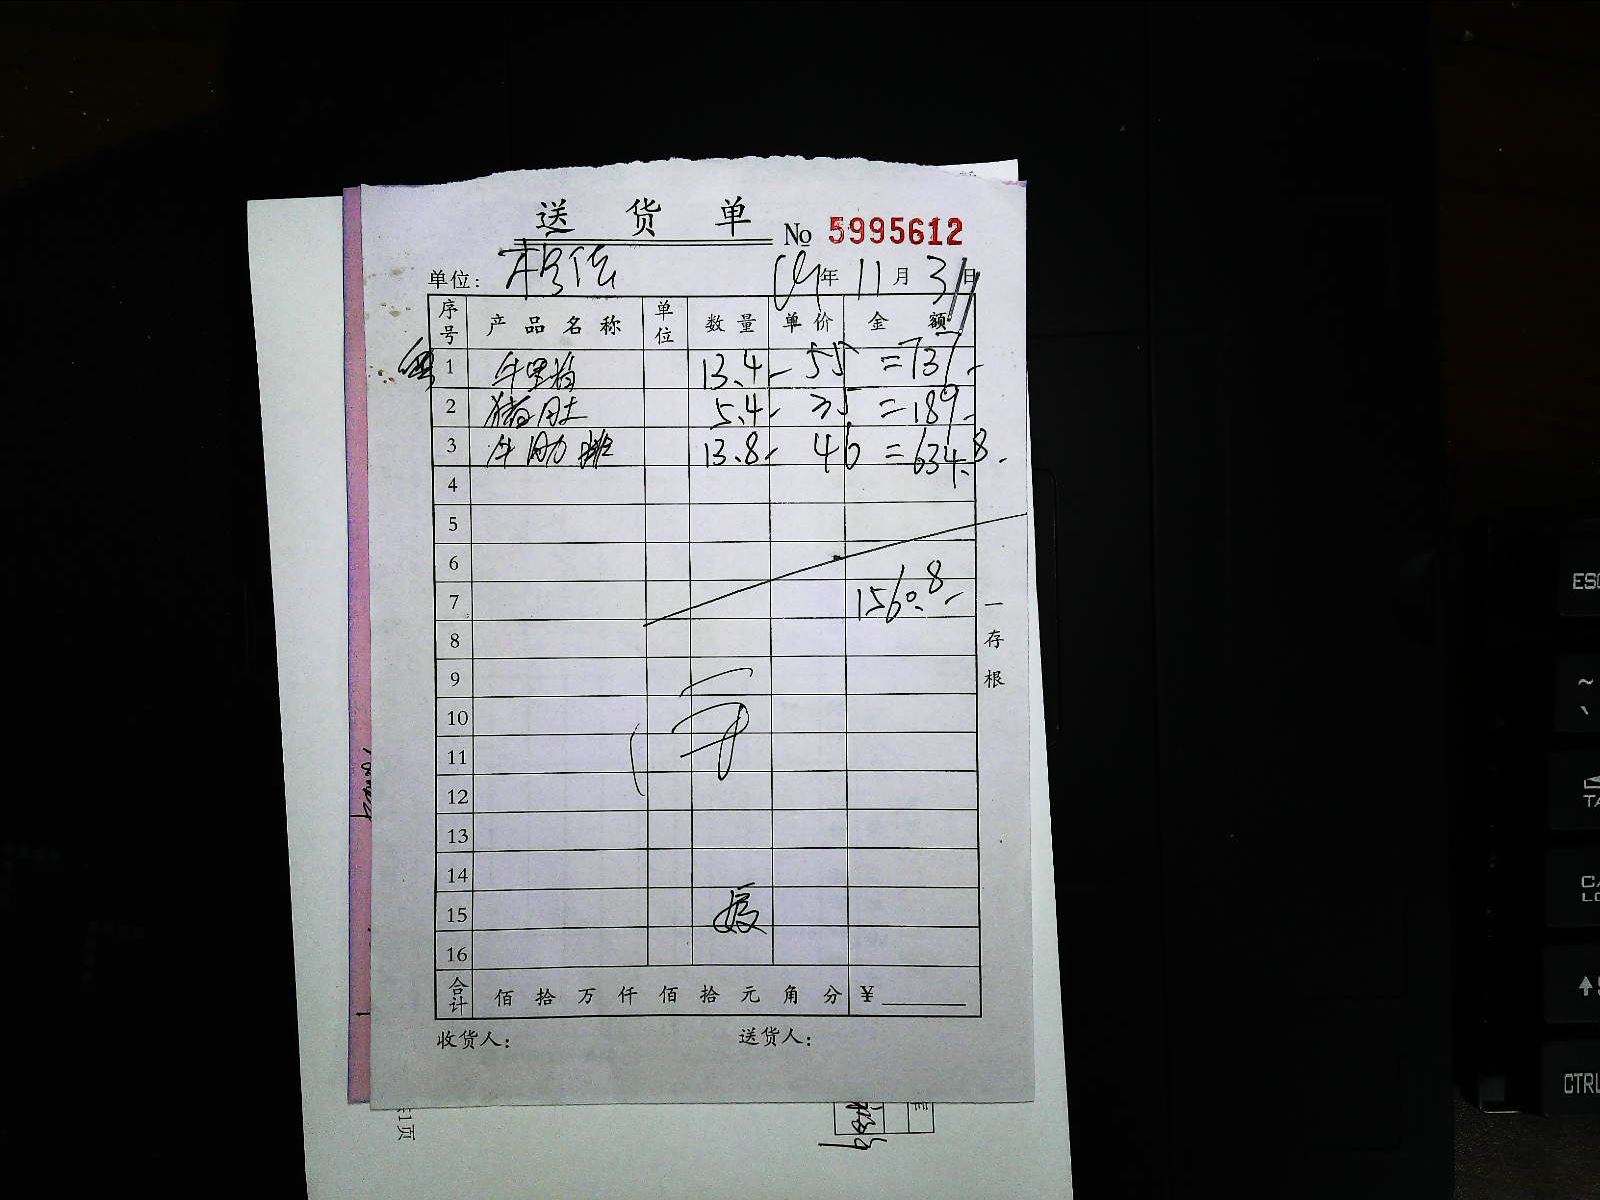 送 货 单
No 5995612
单位：
年 11 月 3 日
序号 产品名称 单位 数量 单价 金 额
1 13.4 - 55 = 737 -
2 猪肚 5.4 - 35 = 189 -
3 牛肋排 13.8 - 46 = 634.8 -
4
5
6
7 1560.8 -
8
9
10
11
12
13
14
15
16
一存根
合计 佰 拾 万 仟 佰 拾 元 角 分 ¥
收货人： 送货人：
1页
ESC
~
TA
CA
LO
CTRL